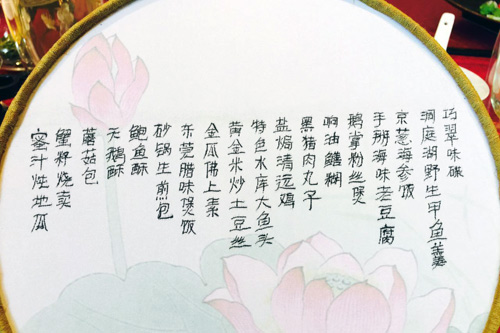 巧翠味碟
洞庭湖野生甲鱼羹
京葱海参饭
手掰海味老豆腐
鹅掌粉丝煲
响油鳝糊
黑猪肉丸子
盐焗清远鸡
特色水库大鱼头
黄金米炒土豆丝
金瓜佛上素
东莞腊味煲饭
砂锅生煎包
鲍鱼酥
天鹅酥
蘑菇包
蟹籽烧卖
蜜汁炖地瓜